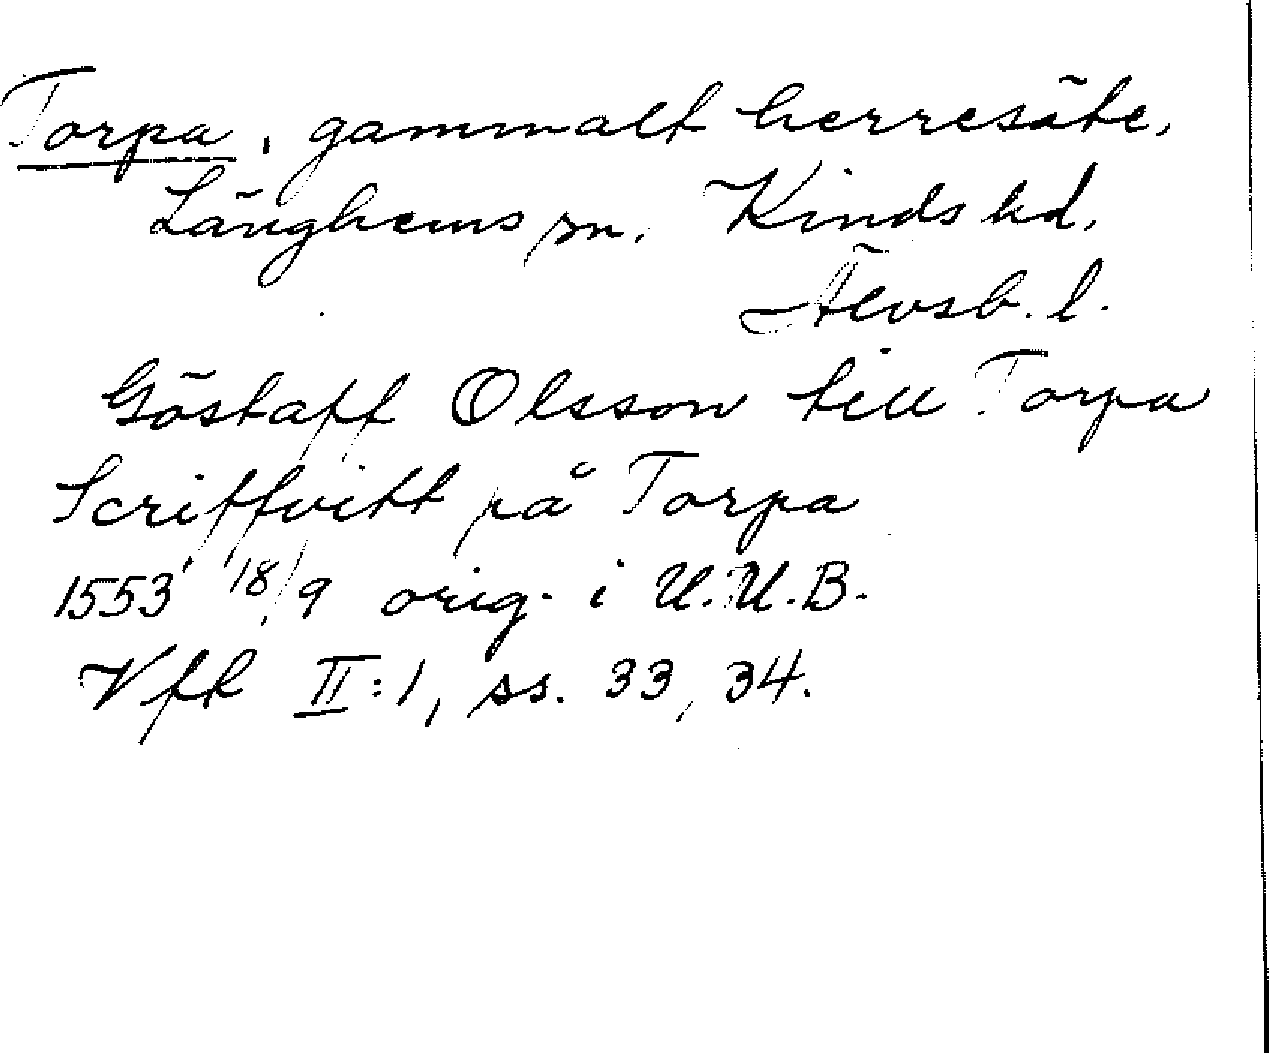 Torpa, gammalt herresäte,
Länghems sn. Kinds hd.
Älvsb. l.
Göstaff Olsson till Torpa
Scriffvitt på Torpa
1553 18/9 orig. i U.U.B.
VfR II:1, ss. 33, 34.